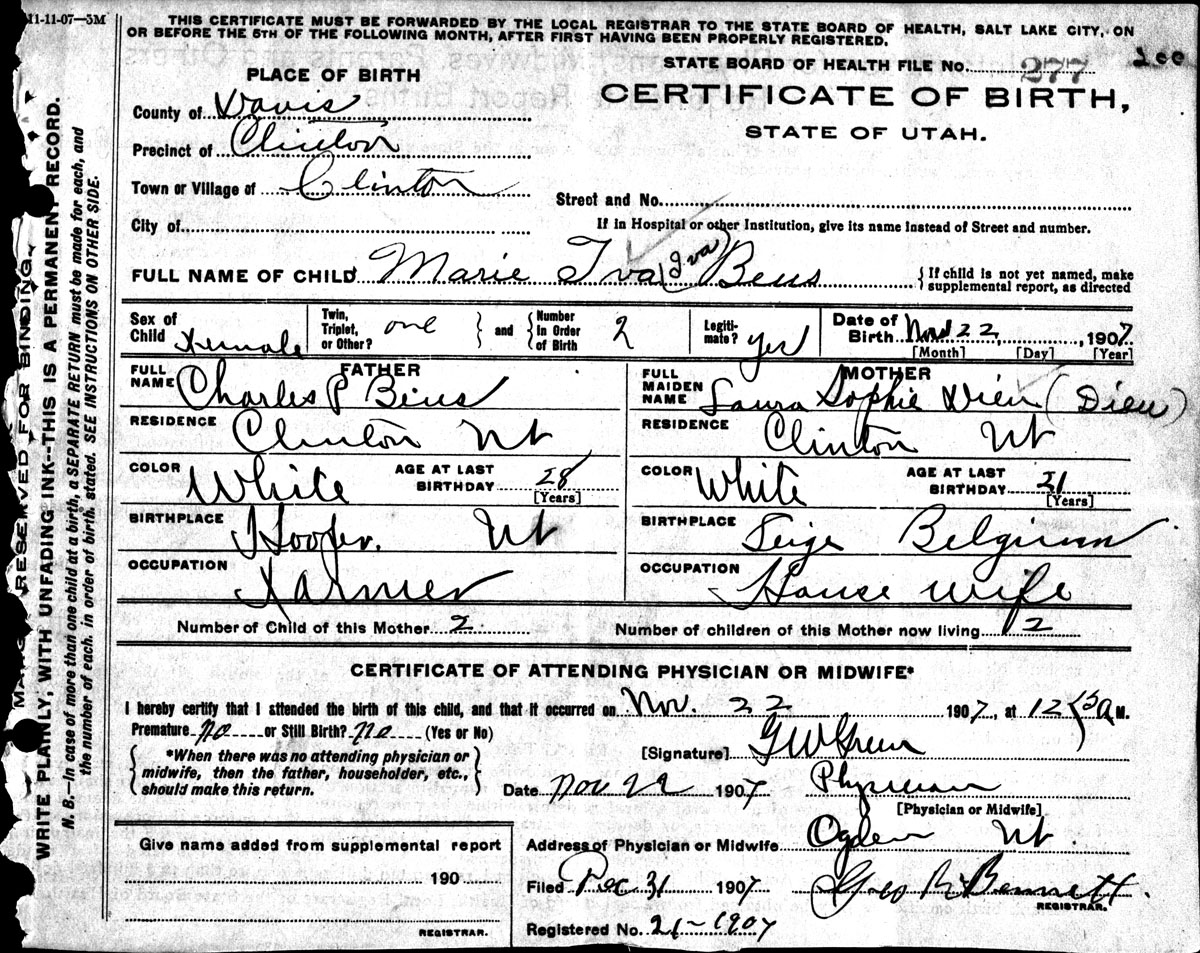 11-11-07—3M
THIS CERTIFICATE MUST BE FORWARDED BY THE LOCAL REGISTRAR TO THE STATE BOARD OF HEALTH, SALT LAKE CITY, ON
OR BEFORE THE 5TH OF THE FOLLOWING MONTH, AFTER FIRST HAVING BEEN PROPERLY REGISTERED.
STATE BOARD OF HEALTH FILE NO. 277 200
CERTIFICATE OF BIRTH,
STATE OF UTAH.
PLACE OF BIRTH
County of Davis
Precinct of Clinton
Town or Village of Clinton
Street and No.
City of
If in Hospital or other Institution, give its name instead of Street and number.
FULL NAME OF CHILD Marie Iva (Iva) Beus
{ If child is not yet named, make
supplemental report, as directed
Sex of Child Female
Twin, Triplet, or Other? one } and { Number in Order of Birth 2
Legitimate? yes
Date of Birth Nov 22, 1907
[Month] [Day] [Year]
FATHER
FULL NAME Charles P Beus
RESIDENCE Clinton Ut
COLOR White AGE AT LAST BIRTHDAY 28 [Years]
BIRTHPLACE Hooper. Ut
OCCUPATION Farmer
MOTHER
FULL MAIDEN NAME Laura Sophie Dieu (Dieu)
RESIDENCE Clinton Ut
COLOR White AGE AT LAST BIRTHDAY 21 [Years]
BIRTHPLACE Leige Belgium
OCCUPATION House wife
Number of Child of this Mother 2 Number of children of this Mother now living 2
CERTIFICATE OF ATTENDING PHYSICIAN OR MIDWIFE*
I hereby certify that I attended the birth of this child, and that it occurred on Nov. 22 1907, at 12 15 A M.
Premature no or Still Birth? no (Yes or No)
{ *When there was no attending physician or
midwife, then the father, householder, etc.,
should make this return. }
[Signature] G W Green
Date Nov 22 1907 Physician
[Physician or Midwife]
Address of Physician or Midwife Ogden Ut.
Give name added from supplemental report
190
REGISTRAR.
Filed Dec 31 1907 Bennett.
REGISTRAR.
Registered No. 21-1907
MARGIN RESERVED FOR BINDING.
WRITE PLAINLY, WITH UNFADING INK--THIS IS A PERMANENT RECORD.
N. B.—In case of more than one child at a birth, a SEPARATE RETURN must be made for each, and
the number of each, in order of birth, stated. SEE INSTRUCTIONS ON OTHER SIDE.